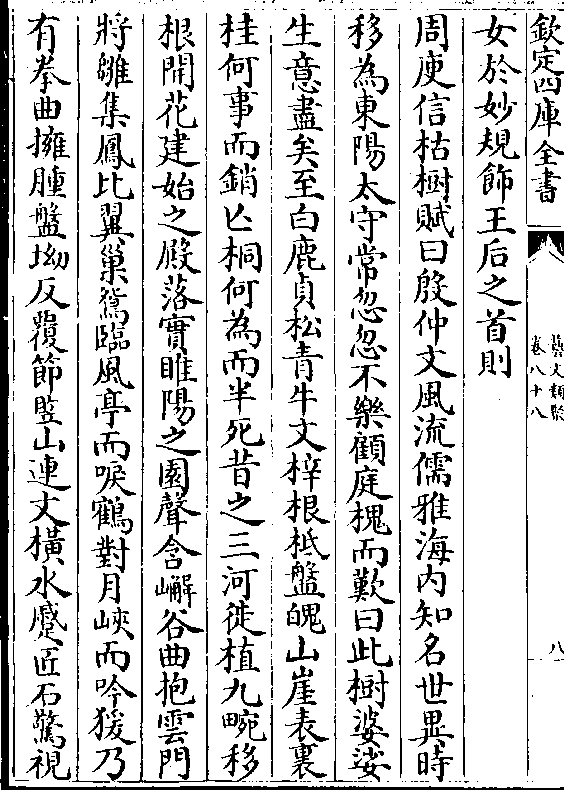 欽定四庫全書
藝文類聚
卷八十八
八
女於妙規飾王后之首則
周庾信枯樹賦曰殷仲文風流儒雅海内知名世異時
移為東陽太守常忽忽不樂顧庭槐而歎曰此樹婆娑
生意盡矣至白鹿貞松青牛文梓根柢盤魄山崖表裏
桂何事而銷亡桐何為而半死昔之三河徙植九畹移
根開花建始之殿落實睢陽之園聲含嶰谷曲抱雲門
將雛集鳳比翼巢鴛臨風亭而唳鶴對月峽而吟猨乃
有拳曲擁腫盤坳反覆節竪山連文横水蹙匠石驚視